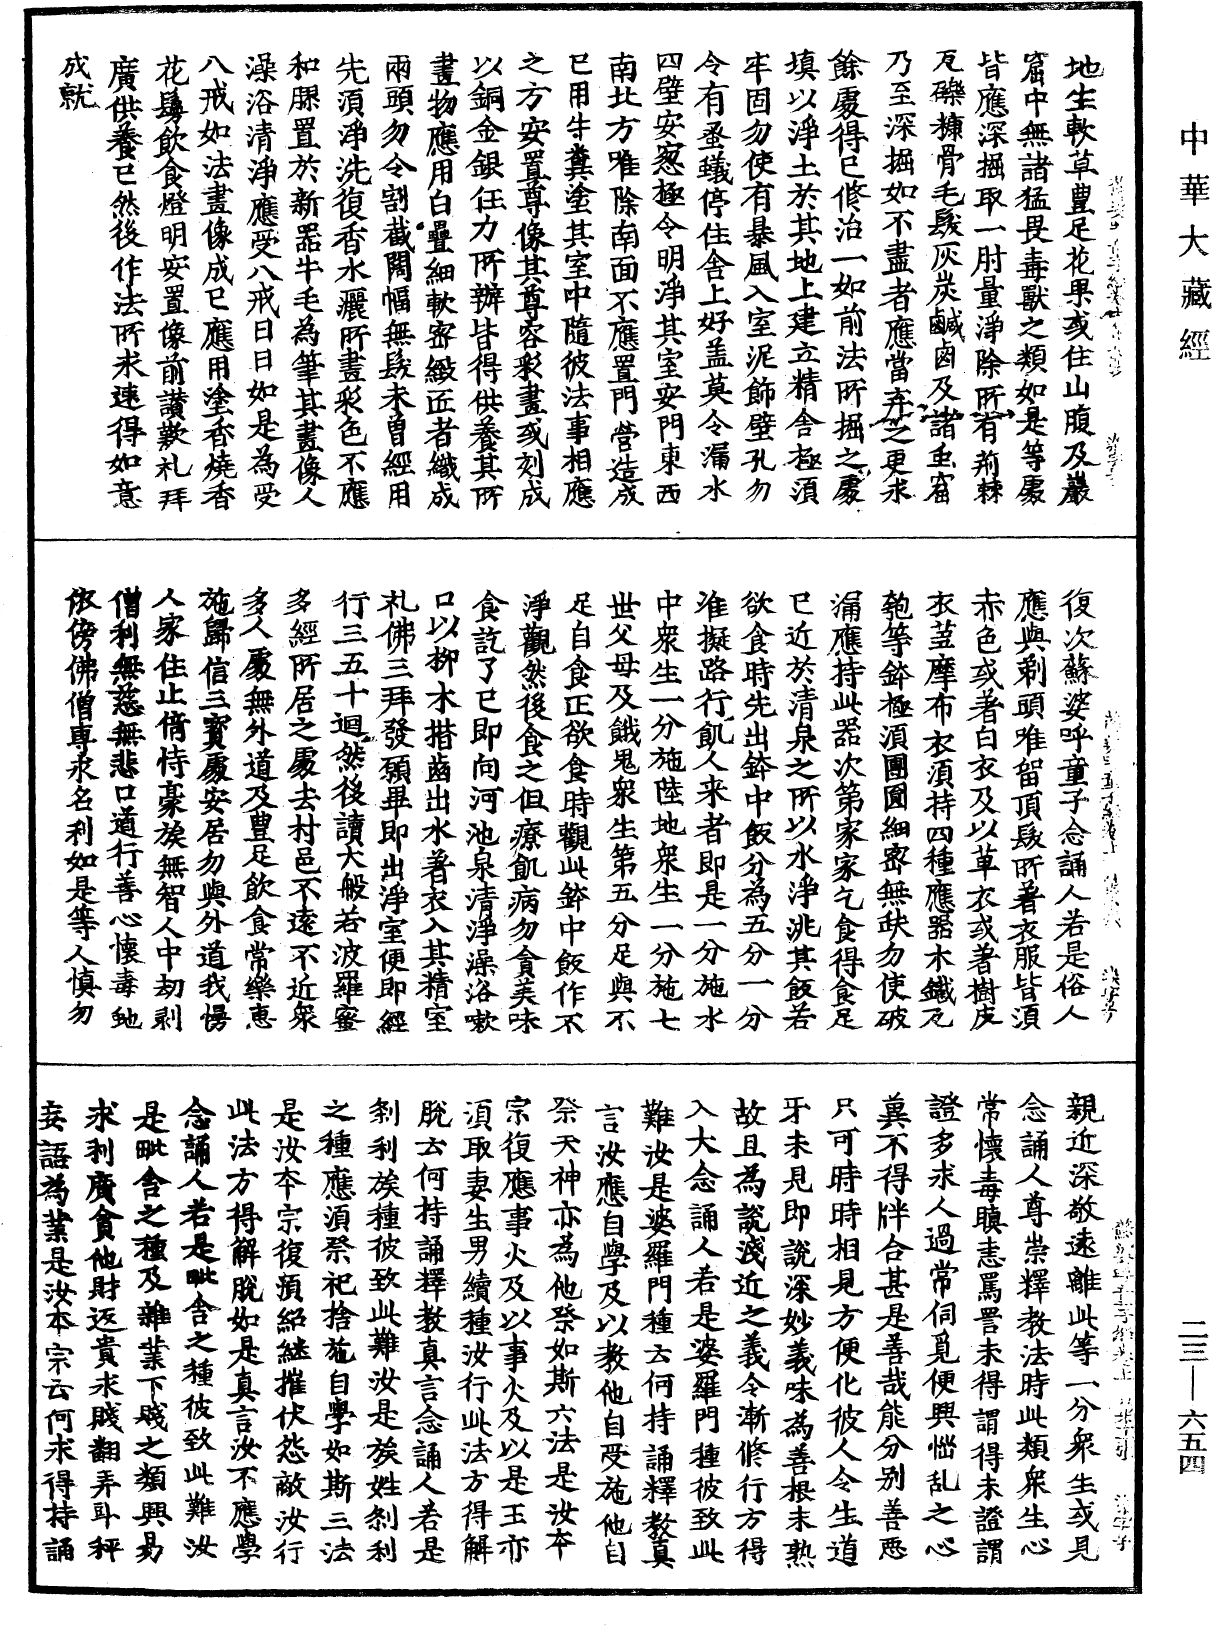 中華大藏經
地生軟草豊足花果或住山腹及巖
窟中無諸猛畏毒獸之類如是等處
皆應深掘取一肘量淨除所有荊棘
瓦礫糠骨毛髮灰炭鹹鹵及諸虫窟
乃至深掘如不盡者應當弃之更求
餘處得已修治一如前法所掘之處
填以淨土於其地上建立精舍極須
牢固勿使有暴風入室泥飾壁孔勿
令有蚤蟻停住舍上好盖莫令漏水
四壁安窓極令明淨其室安門東西
南北方唯除南面不應置門營造成
已用牛糞塗其室中隨彼法事相應
之方安置尊像其尊容彩畫或刻成
以銅金銀任力所辦皆得供養其所
畫物應用白疊細軟密緻匠者織成
兩頭勿令割截闊幅無髮未曾經用
先須淨洗復香水灑所畫彩色不應
和膠置於新器牛毛為筆其畫像人
澡浴清淨應受八戒日日如是為受
八戒如法畫像成已應用塗香燒香
花鬘飲食燈明安置像前讚歎礼拜
廣供養已然後作法所求速得如意
成就
復次蘇婆呼童子念誦人若是俗人
應與剃頭唯留頂髮所著衣服皆須
赤色或著白衣及以草衣或著樹皮
衣芻摩布衣須持四種應器木鐵瓦
匏等鉢極須團圓細密無缺勿使破
漏應持此器次第家家乞食得食足
已近於清泉之所以水淨洮其飯若
欲食時先出鉢中飯分為五分一分
准擬路行飢人来者即是一分施水
中衆生一分施陸地衆生一分施七
世父母及餓鬼衆生第五分足與不
足自食正欲食時觀此鉢中飯作不
淨觀然後食之但療飢病勿貪美味
食訖了已即向河池泉清淨澡浴嗽
口以柳木揩齒出水著衣入其精室
礼佛三拜發願畢即出淨室便即經
行三五十迴然後讀大般若波羅蜜
多經所居之處去村邑不遠不近衆
多人處無外道及豊足飲食常樂惠
施歸信三寶處安居勿與外道我慢
人家住止倚恃豪族無智人中劫剥
僧利無慈無悲口道行善心懷毒虵
依傍佛僧專求名利如是等人慎勿
親近深敬遠離此等一分衆生或見
念誦人尊崇釋教法時此類衆生心
常懷毒瞋恚罵詈未得謂得未證謂
證多求人過常伺覓便興惱乱之心
冀不得牉合甚是善哉能分别善惡
只可時時相見方便化彼人令生道
牙未見即說深妙義味為善根未熟
故且為說淺近之義令漸修行方得
入大念誦人若是婆羅門種彼致此
難汝是婆羅門種云何持誦釋教真
言汝應自學及以教他自受施他自
祭天神亦為他祭如斯六法是汝本
宗復應事火及以事火及以是王亦
須取妻生男續種汝行此法方得解
脫云何持誦釋教真言念誦人若是
剎利族種彼致此難汝是族姓剎利
之種應須祭祀捨施自學如斯三法
是汝本宗復預紹継摧伏怨敵汝行
此法方得解脫如是真言汝不應學
念誦人若是毗舍之種彼致此難汝
是毗舍之種及雜業下賤之類興易
求利廣貪他財返貴求賤翻弄斗秤
妄語為業是汝本宗云何求得持誦
二三—六五四